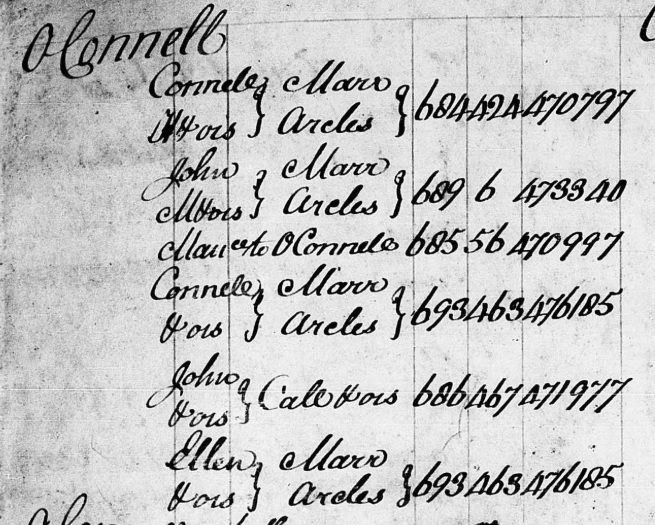 O Connell
Connell } Marr } 684 424 470797
& ors } Arcles
John } Marr } 689 6 473340
& ors } Arcles
Mau to O Connell 685 56 470997
Connell } Marr } 693 463 476185
& ors } Arcles
John } Call & ors 686 467 471977
& ors }
Ellen } Marr } 693 463 476185
& ors } Arcles